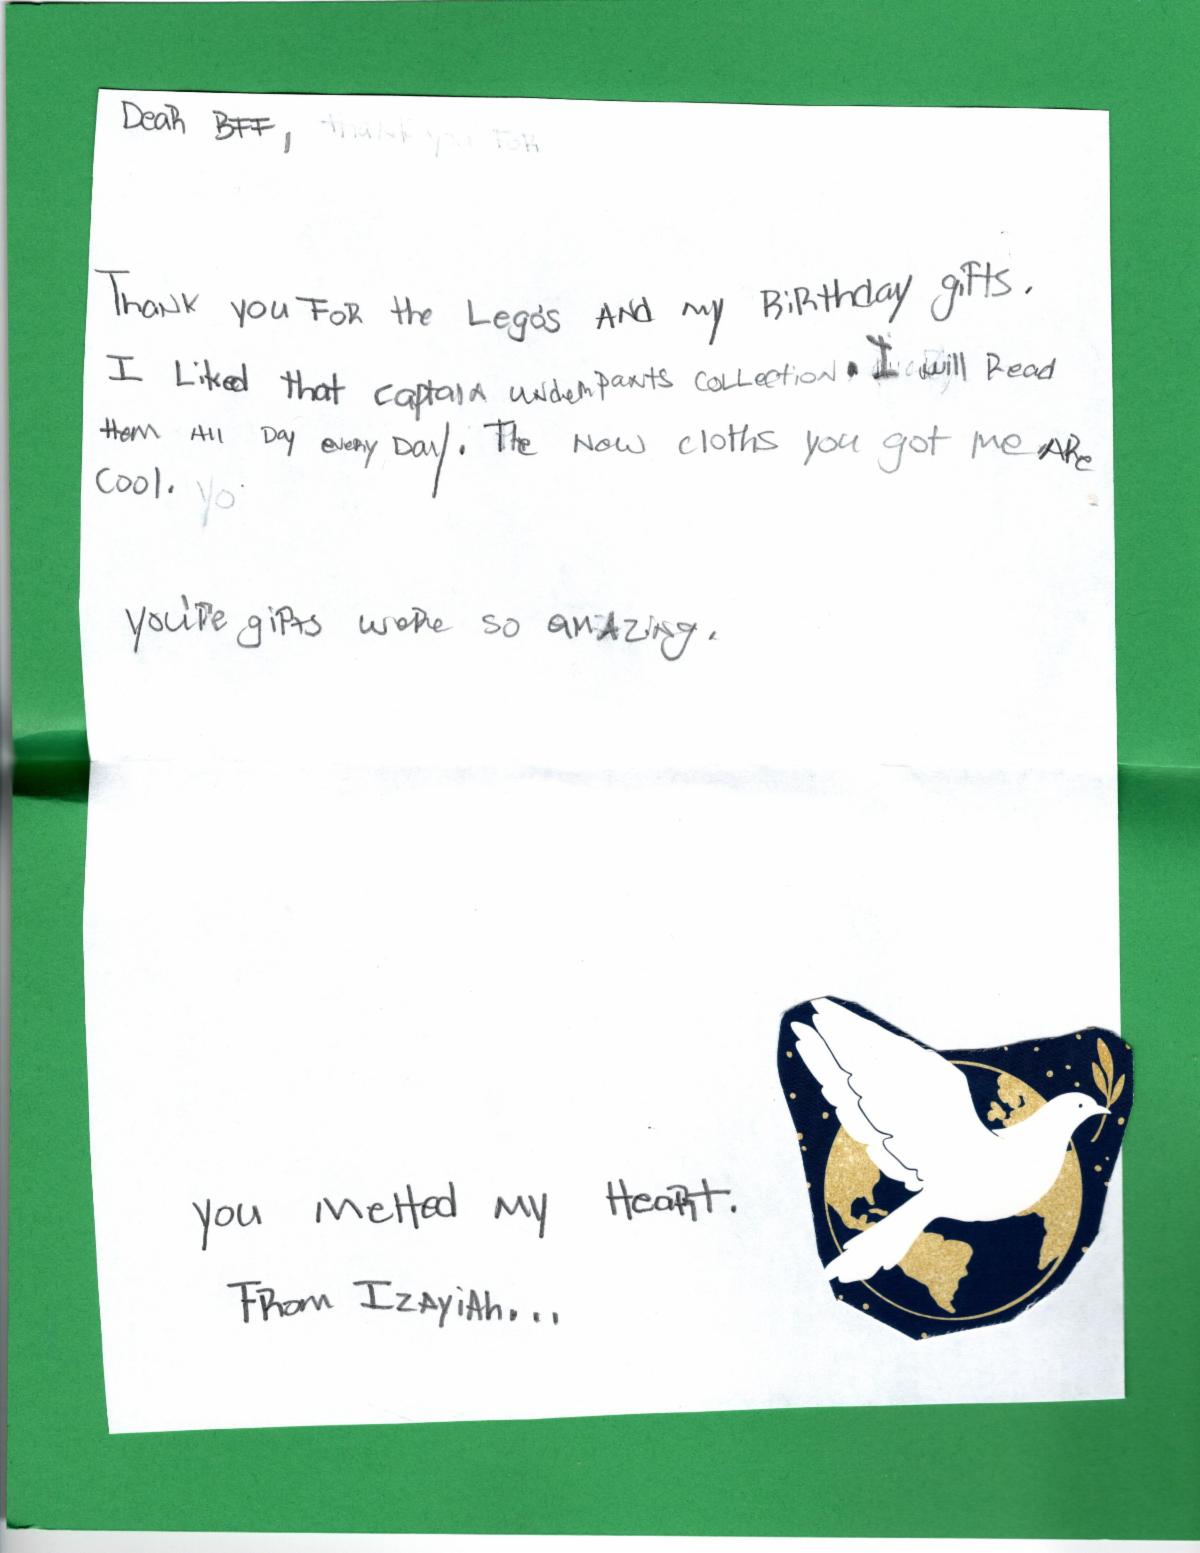 Dear BFF, thank you FOR
Thank you FOR the Lego's AND my BiRthday gifts.
I Liked that captain underpants COLLECTION. I will Read
them All Day every Day. The New cloths you got me ARe
Cool. yo
you're gifts were so amAzing.
you melted my HeaRt.
FRom IzAyiAh...